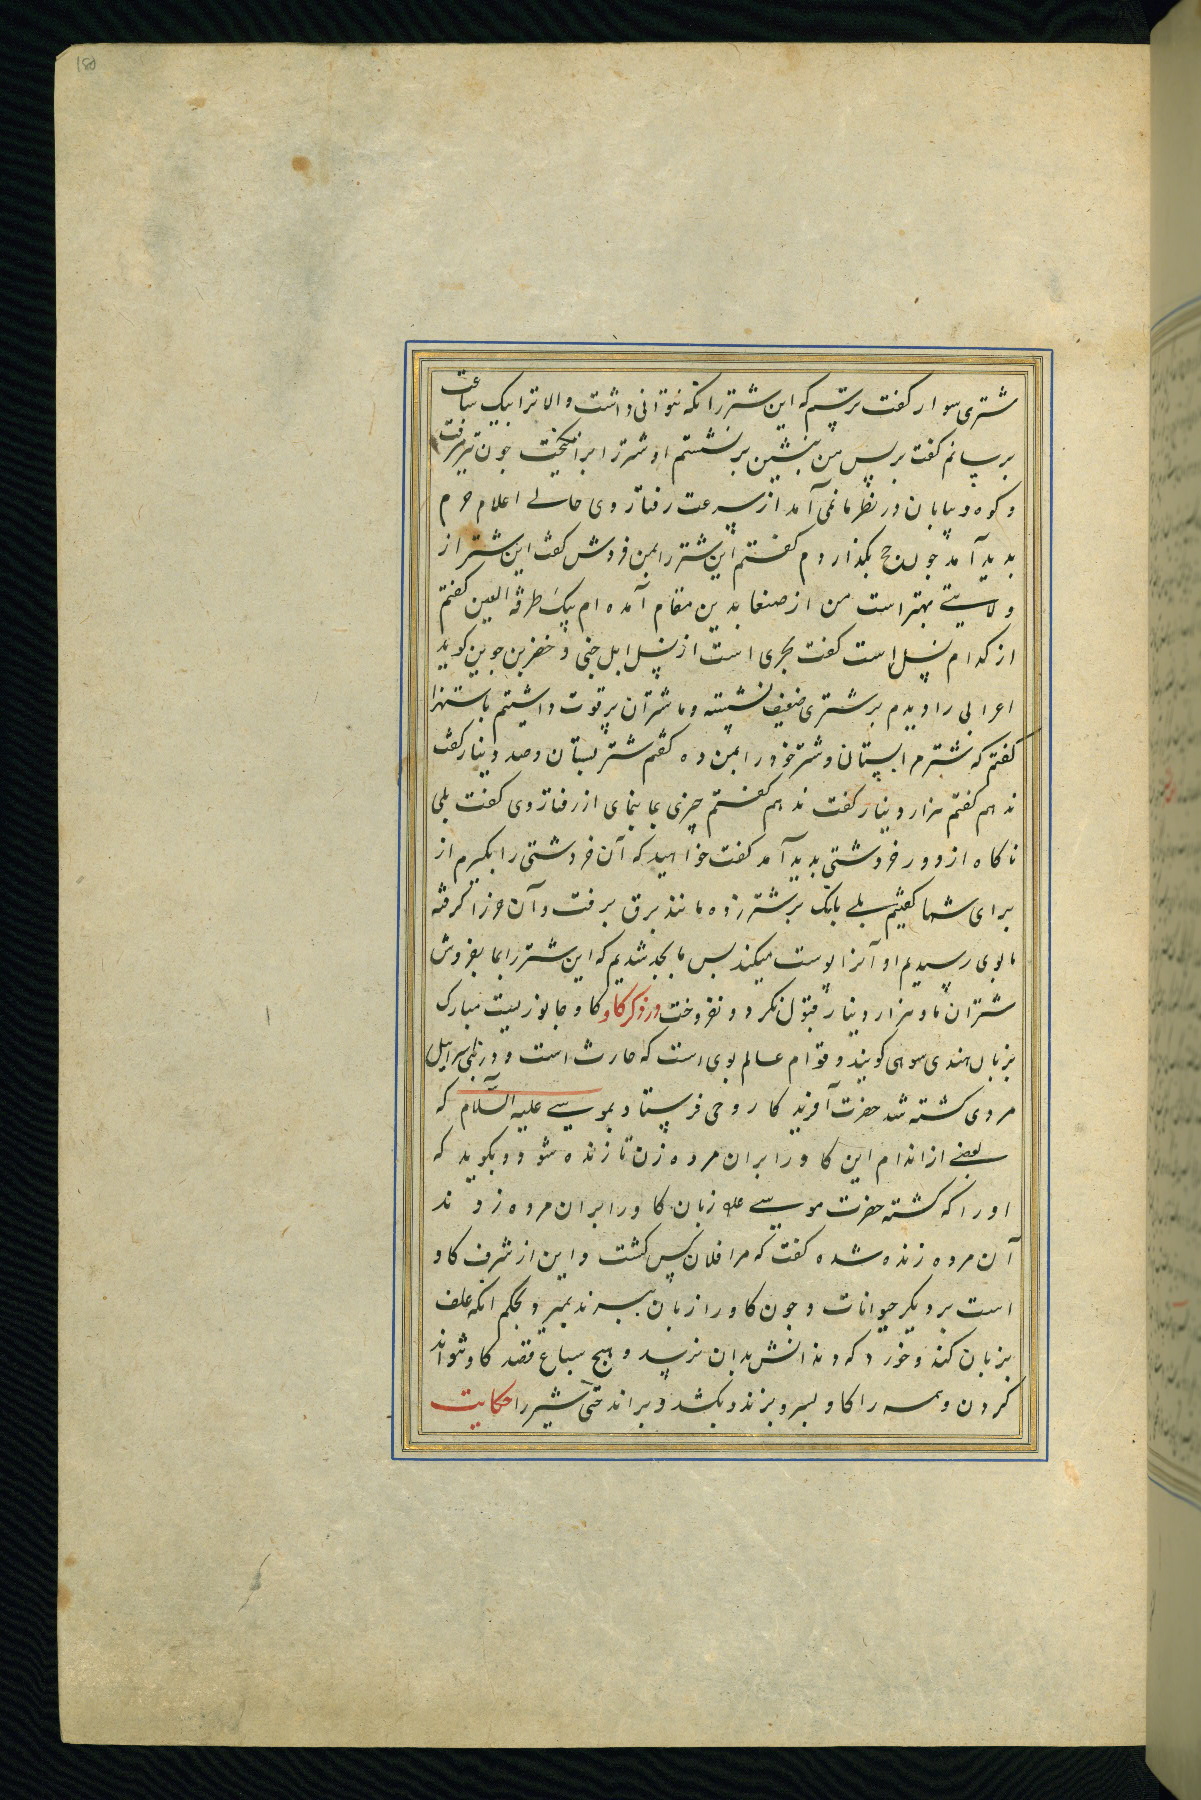 شتری سوار کفت ترسم که این شتر را نکه نتوانی داشت والا ترا بیک ساعت
برسانم کفت بر پس من بنشین برنشستم او شتر را برانکیخت چون تیر میرفت
و کوه و بیابان در نظر ما نمی آمد از سرعت رفتار وی حالی اعلام حرم
بدید آمد چون حج بکذاردم کفتم این شتر را بمن فروش کفت این شتر از
ولایتی بهتر است من از صنعا بدین مقام آمده ام بیک طرفة العین کفتم
از کدام نسل است کفت بحری است از نسل ابل جنی و خضر بن جوین کوید
اعرابی را دیدم بر شتری ضعیف نشسته و ما شتران پر قوت داشتیم باستهزا
کفتم که شترم ابستان و شتر خود را بمن ده کفتم شتر بستان و صد دینار کفت
ندهم کفتم هزار دینار کفت ندهم کفتم چیزی بما بنمای از رفتار وی کفت بلی
ناکاه از دور خروشتی بدید آمد کفت خواهید که آن خروشتی را بکیرم از
برای شما کفتیم بلی بانک بر شتر زده مانند برق برفت و آن خر را کرفته
ما بوی رسیدیم او آنرا پوست میکند پس ما بجد شدیم که این شتر را بما بفروش
شتران ما و هزار دینار قبول نکرد و نفروخت در ذکر کاو کاو جانوریست مبارک
بزبان هندی سوهی کویند و قوام عالم بوی است که حارث است و در بنی اسرائیل
مردی کشته شد حضرت آفریدکار وحی فرستاد بموسی علیه السلام که
بعضی از اندام این کاو را بران مرده زن تا زنده شود و بکوید که
او را که کشته حضرت موسی علم زبان کاو را بران مرده زدند
آن مرده زنده شده کفت که مرا فلان کس کشت و این از شرف کاو
است بر دیکر حیوانات و چون کاو را زبان ببرند بمیرد بحکم انکه علف
بزبان کند و خورد که دندانش بدان نرسد و هیچ سباع قصد کاو نتواند
کردن و همه را کاو بسرو بزند و بکشد و براند حتی شیر را حکایت